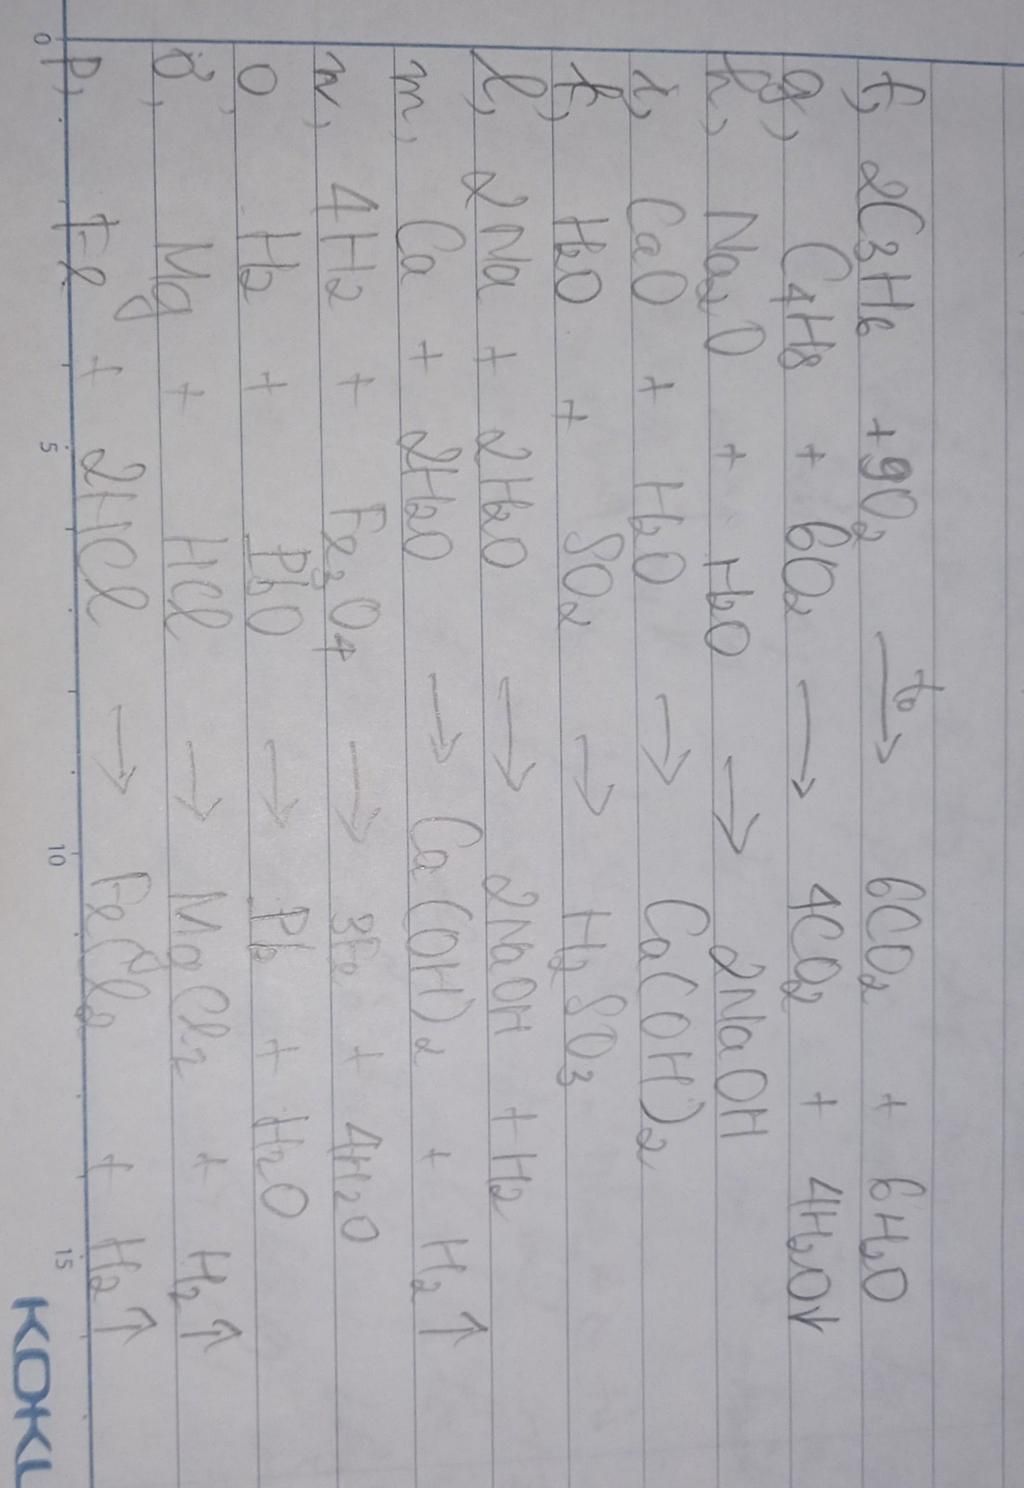 f, 2C3H6 + 9O2 —t°→ 6CO2 + 6H2O
g, C4H8 + 6O2 → 4CO2 + 4H2O↓
h, Na2O + H2O → 2NaOH
i, CaO + H2O → Ca(OH)2
k, H2O + SO2 → H2SO3
l, 2Na + 2H2O → 2NaOH + H2
m, Ca + 2H2O → Ca(OH)2 + H2↑
n, 4H2 + Fe3O4 → 3Fe + 4H2O
o, H2 + PbO → Pb + H2O
ơ, Mg + HCl → MgCl2 + H2↑
p, Fe + 2HCl → FeCl2 + H2↑
0 5 10 15